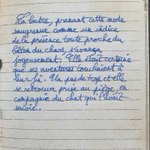 La butre, prenant cette mode
saugrenue comme un indice
de la présence toute proche du
bâton du chaos, s'avança
joyeusement. Elle était certaine
que ses aventures touchaient à
leur fin. Un pas de trop et elle
se retrouva prise au piège en
compagnie du chat qui l'avait
suivie.